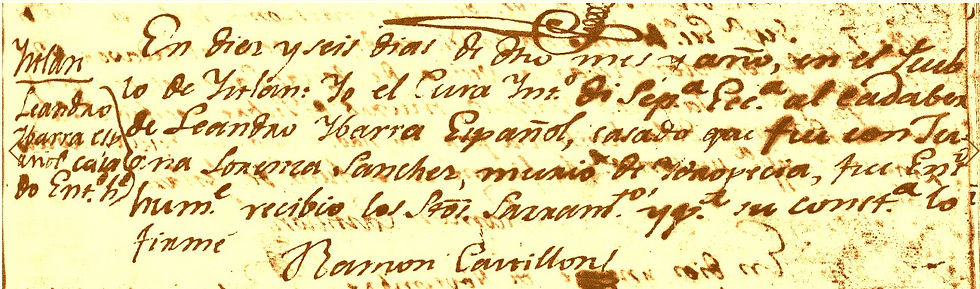 Ixtlan
Leandro
Ybarra esp
añol casa
do Ent.º h.e
En diez y seis dias de dho mes y año, en el Pueb
lo de Ixtlan: Yo el Cura Int.º di Sep.a Ecc.a al cadaber
de Leandro Ybarra Español, casado que fue con Jua
na Lorenza Sanchez, murió de Ydropecia, fue Ent.do
hum.e recibio los Stos. Sacram.tos y p.a su const.a lo
firmé
Ramon Castillon